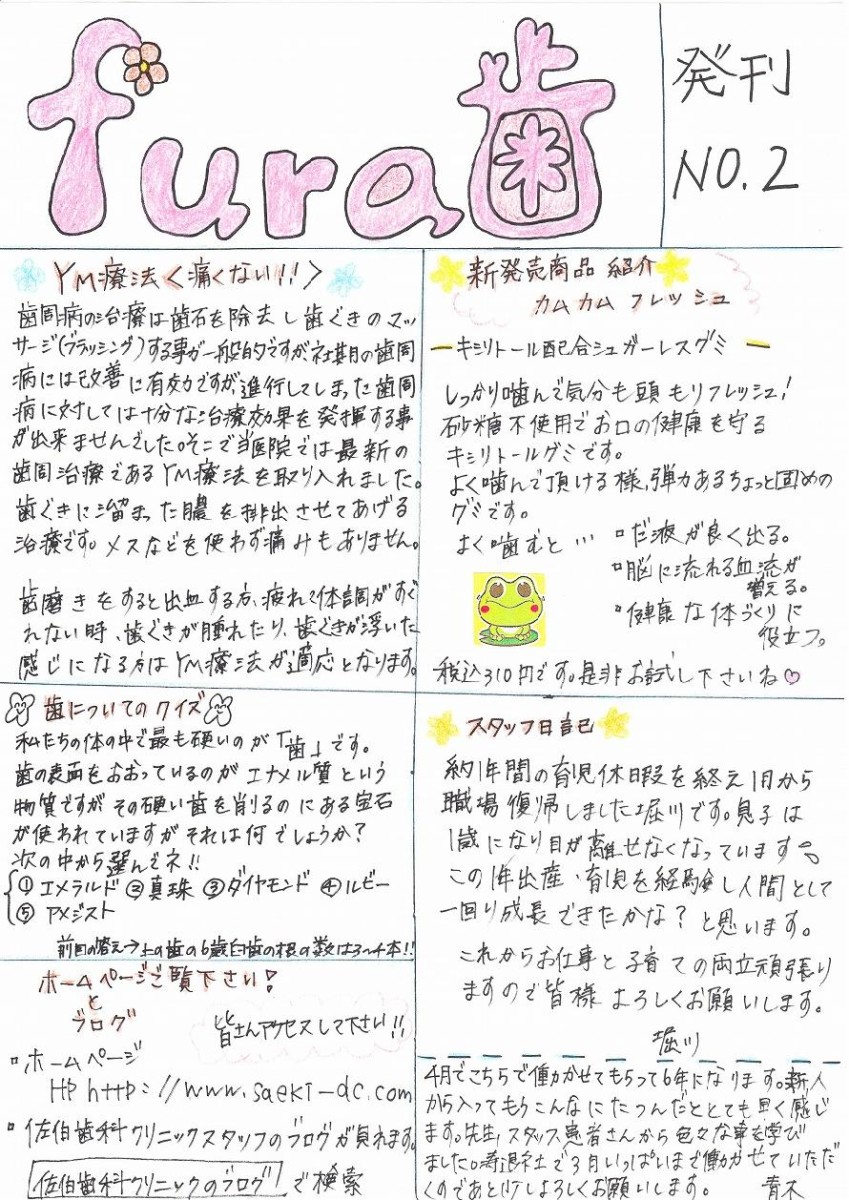 fura歯
発刊
NO.2
YM療法<痛くない!!>
歯周病の治療は歯石を除去し歯ぐきのマッ
サージ(ブラッシング)する事が一般的ですが、初期の歯周
病には改善に有効ですが、進行してしまった歯周
病に対しては十分な治療効果を発揮する事
が出来ませんでした。そこで当医院では最新の
歯周治療であるYM療法を取り入れました。
歯ぐきに溜まった膿を排出させてあげる
治療です。メスなどを使わず痛みもありません。
歯磨きをすると出血する方、疲れて体調がすぐ
れない時、歯ぐきが腫れたり、歯ぐきが浮いた
感じになる方はYM療法が適応となります。
新発売商品 紹介
カムカム フレッシュ
ーキシリトール配合シュガーレスグミー
しっかり噛んで気分も頭もリフレッシュ!
砂糖不使用でお口の健康を守る
キシリトールグミです。
よく噛んで頂ける様、弾力あるちょっと固めの
グミです。
よく噛むと…
▫だ液が良く出る。
▫脳に流れる血流が
増える。
▫健康な体づくりに
役立つ。
税込310円です。是非お試し下さいね♡
歯についてのクイズ
私たちの体の中で最も硬いのが「歯」です。
歯の表面をおおっているのがエナメル質という
物質ですがその硬い歯を削るのにある宝石
が使われていますがそれは何でしょうか?
次の中から選んでネ!!
①エメラルド ②真珠 ③ダイヤモンド ④ルビー
⑤アメジスト
前回の答え→上の歯の6歳臼歯の根の数は3~4本!!
スタッフ日記
約1年間の育児休暇を終え1月から
職場復帰しました堀川です。息子は
1歳になり目が離せなくなっています
この1年出産・育児を経験し人間として
一回り成長できたかな?と思います。
これからお仕事と子育ての両立頑張り
ますので皆様よろしくお願いします。
堀川
ホームページご覧下さい!
と
ブログ
皆さんアクセスして下さい!!
▫ホームページ
HP http://www.saeki-dc.com
▫佐伯歯科クリニックスタッフのブログが見れます。
佐伯歯科クリニックのブログ で検索
4月でこちらで働かせてもらって6年になります。新人
から入ってもうこんなにたつんだととても早く感じ
ます。先生、スタッフ、患者さんから色々な事を学び
ました。寿退社で3月いっぱいまで働かせていただ
くのであと少しよろしくお願いします。 青木